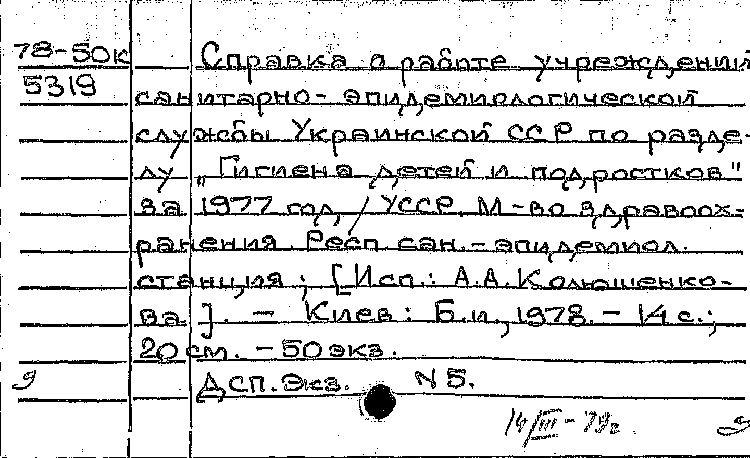 78-50к Справка о работе учреждений
5319 санитарно-эпидемиологической
службы Украинской ССР по разде-
лу „Гигиена детей и подростков"
за 1977 год / УССР. М-во здравоох-
ранения. Респ. сан.-эпидемиол.
станция ; [Исп.: А.А. Колюшенко-
ва]. - Киев : Б.и., 1978. - 14 с.;
20 см. - 50 экз.
Э ДСП. Экз. N 5.
14/III-79г. Э